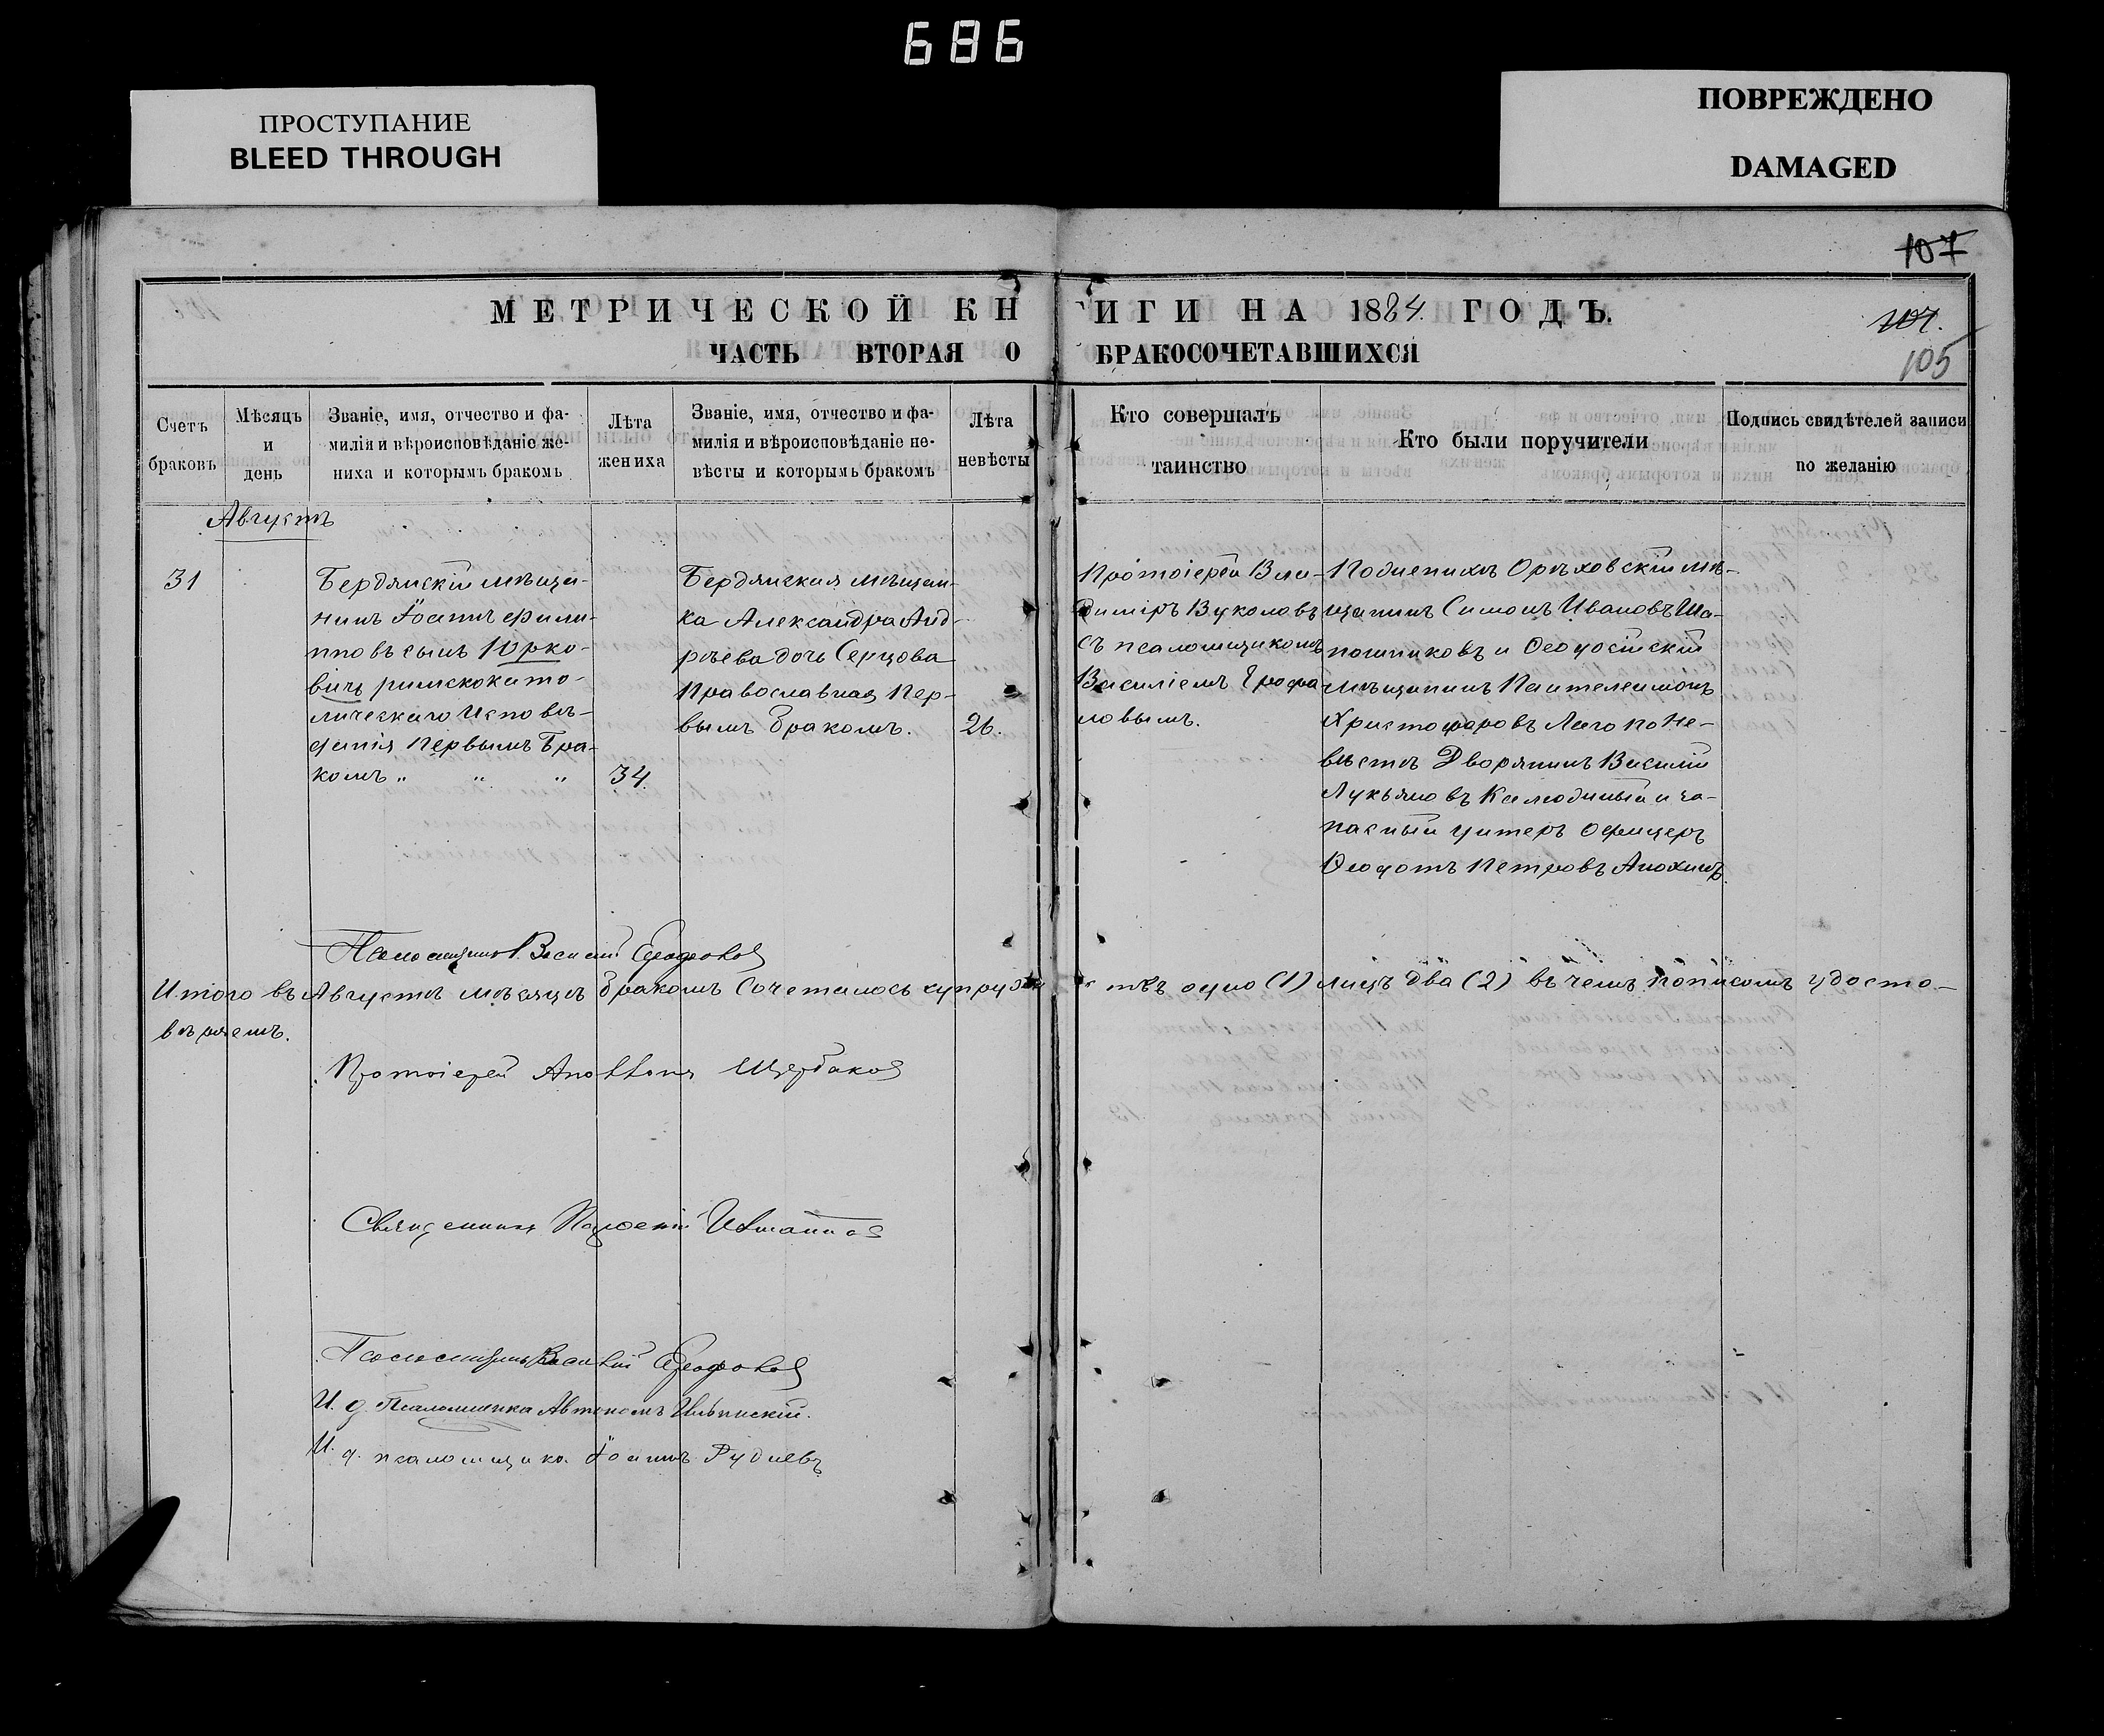 686
ПРОСТУПАНИЕ
BLEED THROUGH
ПОВРЕЖДЕНО
DAMAGED
107
МЕТРИЧЕСКОЙ КНИГИ НА 1884. ГОДЪ.
107.
ЧАСТЬ ВТОРАЯ О БРАКОСОЧЕТАВШИХСЯ
105
Счетъ
браковъ
Мѣсяцъ
и
день
Званіе, имя, отчество и фа-
милія и вѣроисповѣданіе же-
ниха и которымъ бракомъ
Лѣта
жениха
Званіе, имя, отчество и фа-
милія и вѣроисповѣданіе не-
вѣсты и которымъ бракомъ
Лѣта
невѣсты
Кто совершалъ
таинство
Кто были поручители
Подпись свидѣтелей записи
по желанію
Августъ
31
Бердянскій мѣща-
нинъ Іоаннъ Фили-
повъ сынъ Юрко-
вичъ римскокато-
лическаго исповѣ-
данія первымъ бра-
комъ " " "
34
Бердянская мѣщан-
ка Александра Анд-
рѣева дочь Серцова
Православная пер-
вымъ бракомъ.
26.
Протоіерей Вла-
диміръ Вуколовъ
съ псаломщикомъ
Василіемъ Ерофа
ловымъ.
По женихѣ Орѣховскій мѣ-
щанинъ Симонъ Ивановъ Ша-
пошниковъ и Ѳеодосійскій
мѣщанинъ Пантелеимонъ
Христофоровъ Лаго по не-
вѣстѣ Дворянинъ Василій
Лукьяновъ и за-
пасный унтеръ офицеръ
Ѳеодотъ Петровъ Анохинъ.
Псаломщикъ Василій
Итого въ Августѣ мѣсяцѣ бракомъ сочеталось супружествъ одно (1) лицъ два (2) въ чемъ подписомъ удосто-
вѣряемъ.
Протоіерей Аполлонъ Щербаковъ
Священникъ
Псаломщикъ Василій
И. д. Псаломщика Автономъ Ильинскій.
И. д. псаломщика Іоаннъ Рудневъ